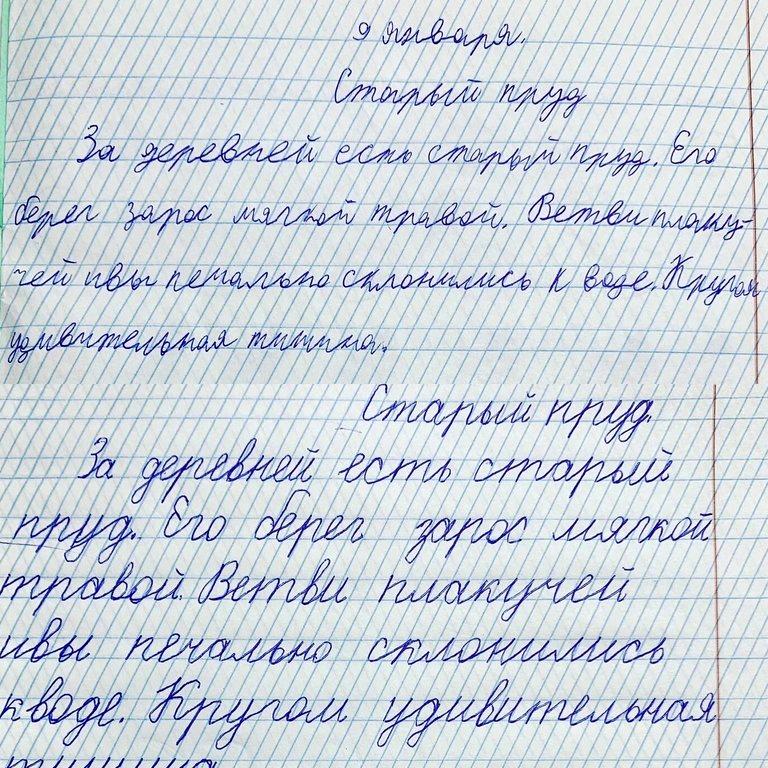 9 января.
Старый пруд
За деревней есть старый пруд. Его
берег зарос мягкой травой. Ветви плаку-
чей ивы печально склонились к воде. Кругом
удивительная тишина.
Старый пруд.
За деревней есть старый
пруд. Его берег зарос мягкой
травой. Ветви плакучей
ивы печально склонились
к воде. Кругом удивительная
тишина